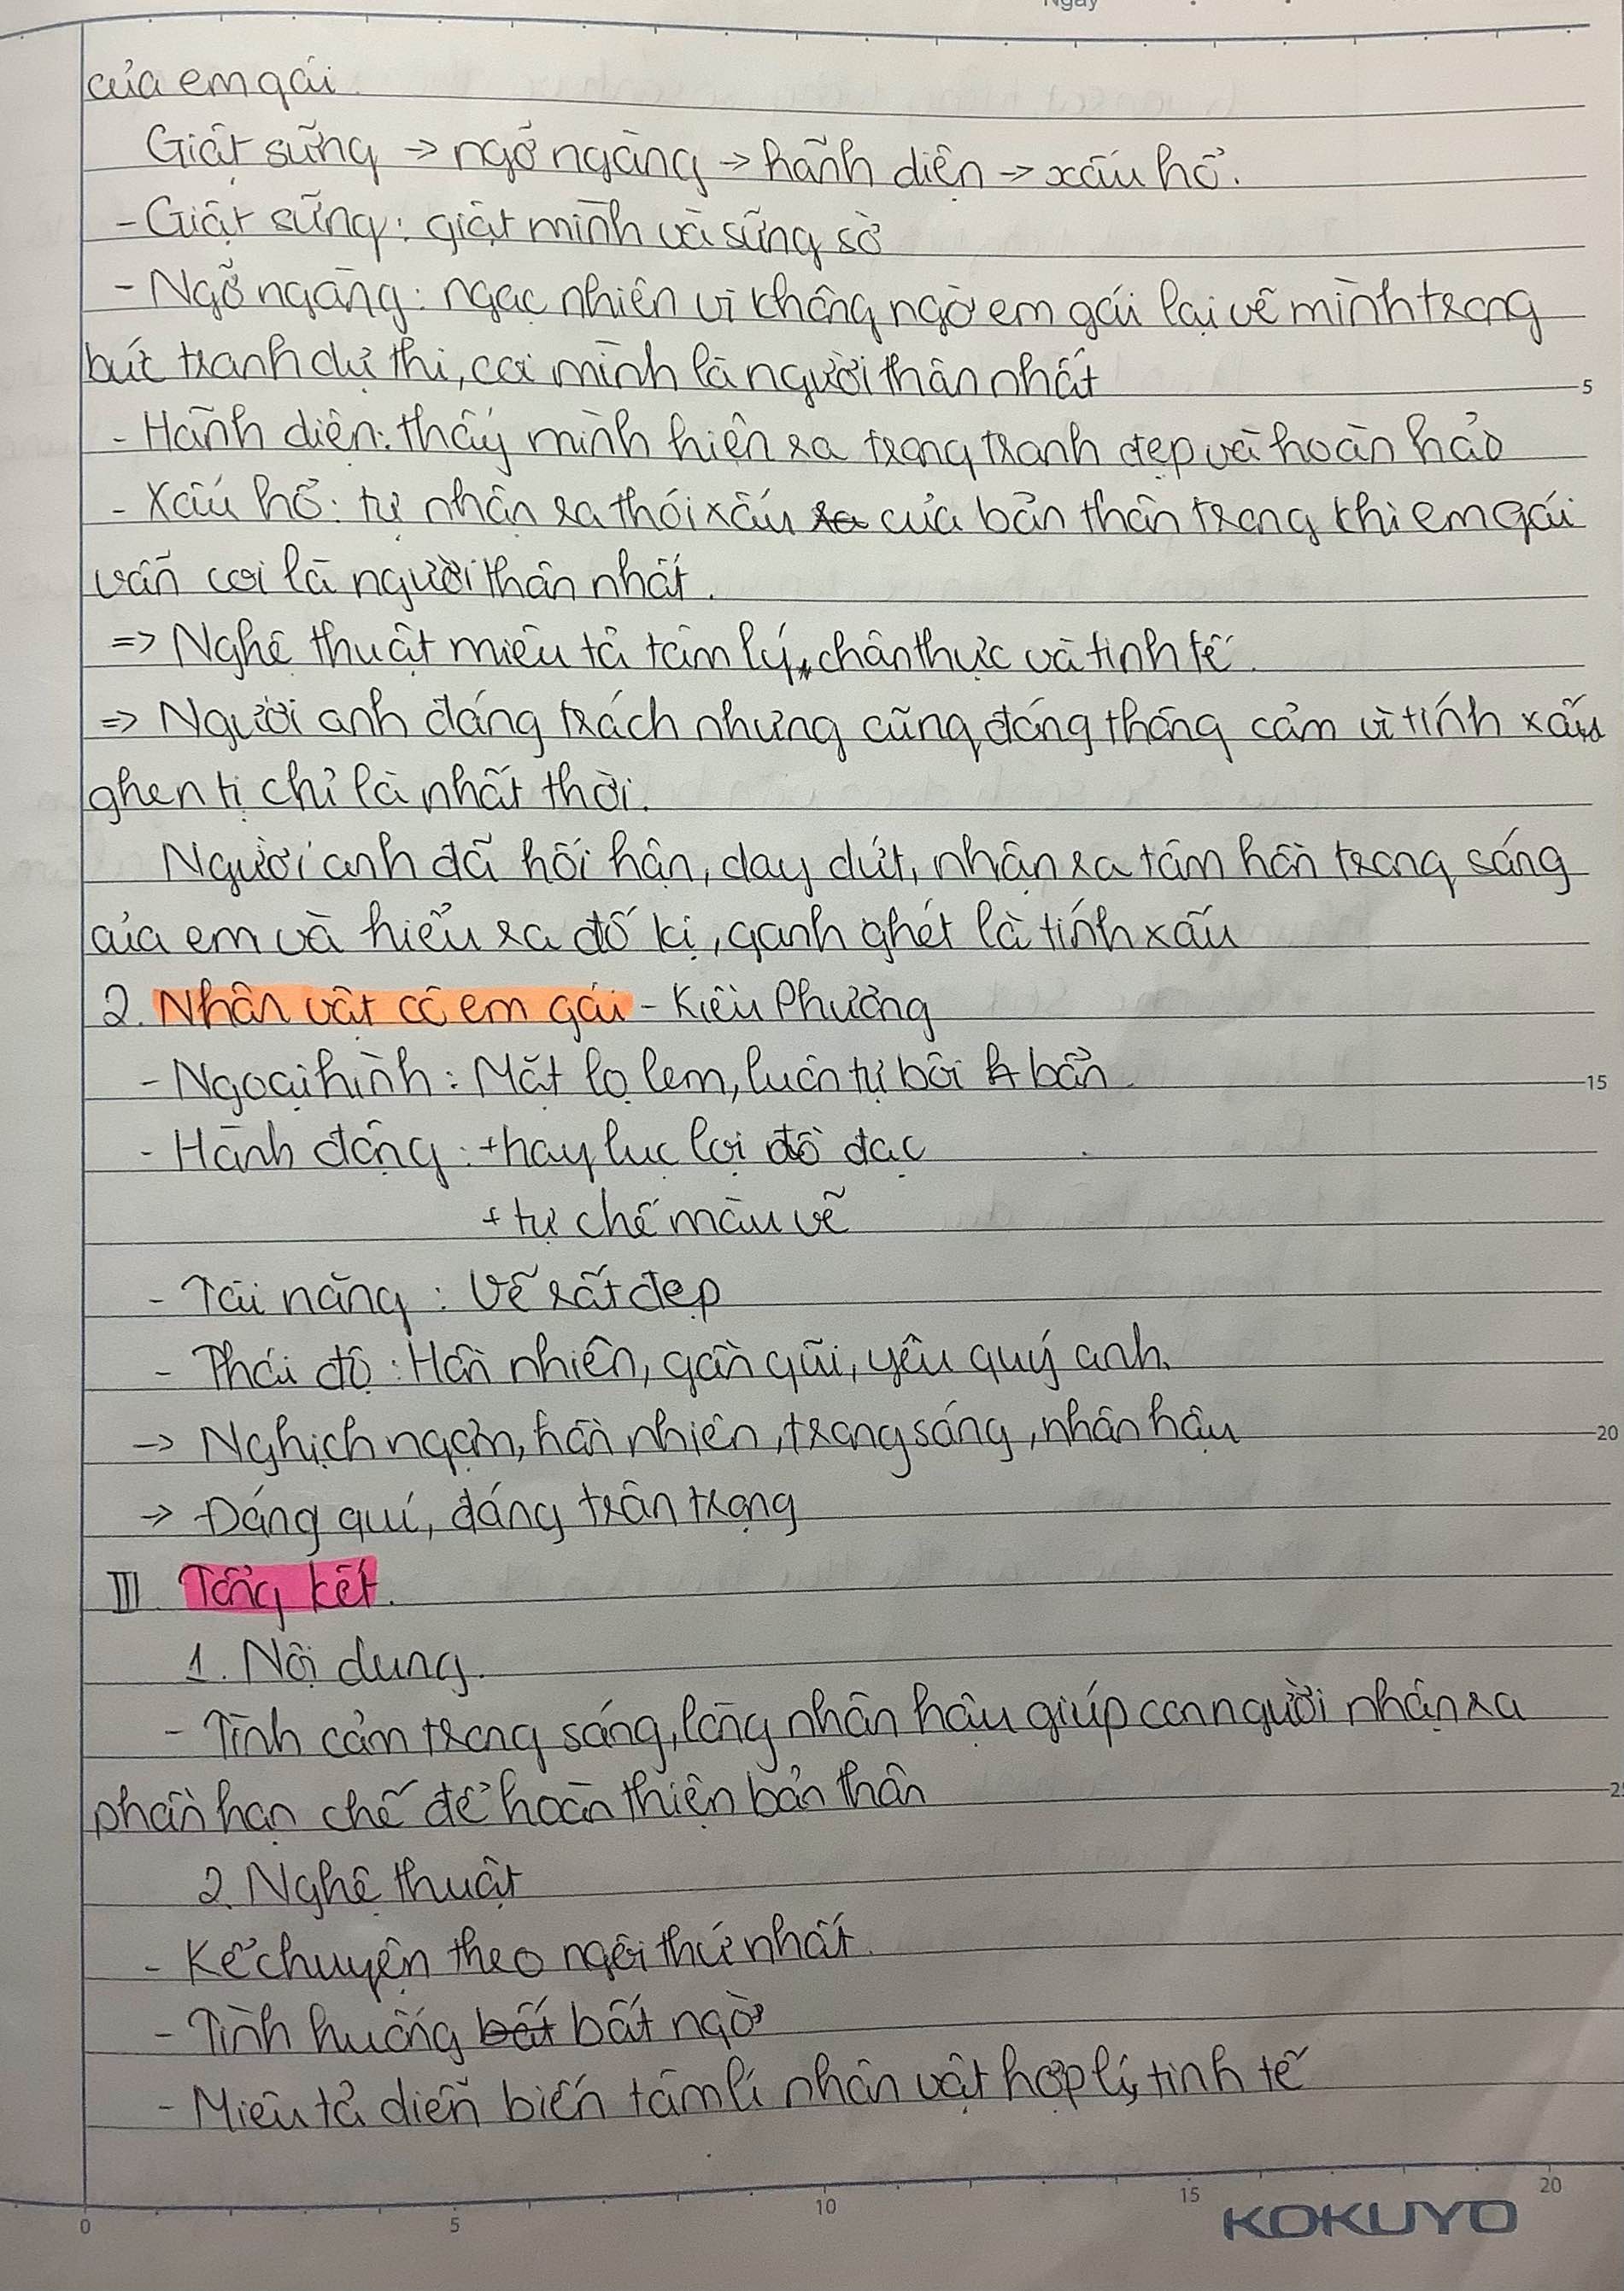 Ngày
của em gái.
Giật sững → ngỡ ngàng → hãnh diện → xấu hổ.
- Giật sững: giật mình và sững sờ
- Ngỡ ngàng: ngạc nhiên vì không ngờ em gái lại vẽ mình trong
bức tranh dự thi, coi mình là người thân nhất
- Hãnh diện: thấy mình hiện ra trong tranh đẹp và hoàn hảo
- Xấu hổ: tự nhận ra thói xấu ra của bản thân trong khi em gái
vẫn coi là người thân nhất.
=> Nghệ thuật miêu tả tâm lý, chân thực và tinh tế.
=> Người anh đáng trách nhưng cũng đáng thông cảm vì tính xấu
ghen tị chỉ là nhất thời.
Người anh đã hối hận, day dứt, nhận ra tâm hồn trong sáng
của em và hiểu ra đố kị, ganh ghét là tính xấu
2. Nhân vật cô em gái - Kiều Phương
- Ngoại hình: Mặt lọ lem, luôn tự bôi bẩn.
- Hành động: + hay lục lọi đồ đạc
+ tự chế màu vẽ
- Tài năng: Vẽ rất đẹp
- Thái độ: Hồn nhiên, gần gũi, yêu quý anh.
→ Nghịch ngợm, hồn nhiên, trong sáng, nhân hậu
→ Đáng quí, đáng trân trọng
III. Tổng kết.
1. Nội dung.
- Tình cảm trong sáng, lòng nhân hậu giúp con người nhận ra
phần hạn chế để hoàn thiện bản thân
2. Nghệ thuật
- Kể chuyện theo ngôi thứ nhất.
- Tình huống bất bất ngờ
- Miêu tả diễn biến tâm lí nhân vật hợp lý, tinh tế
5
15
20
0 5 10 15 20
KOKUYO